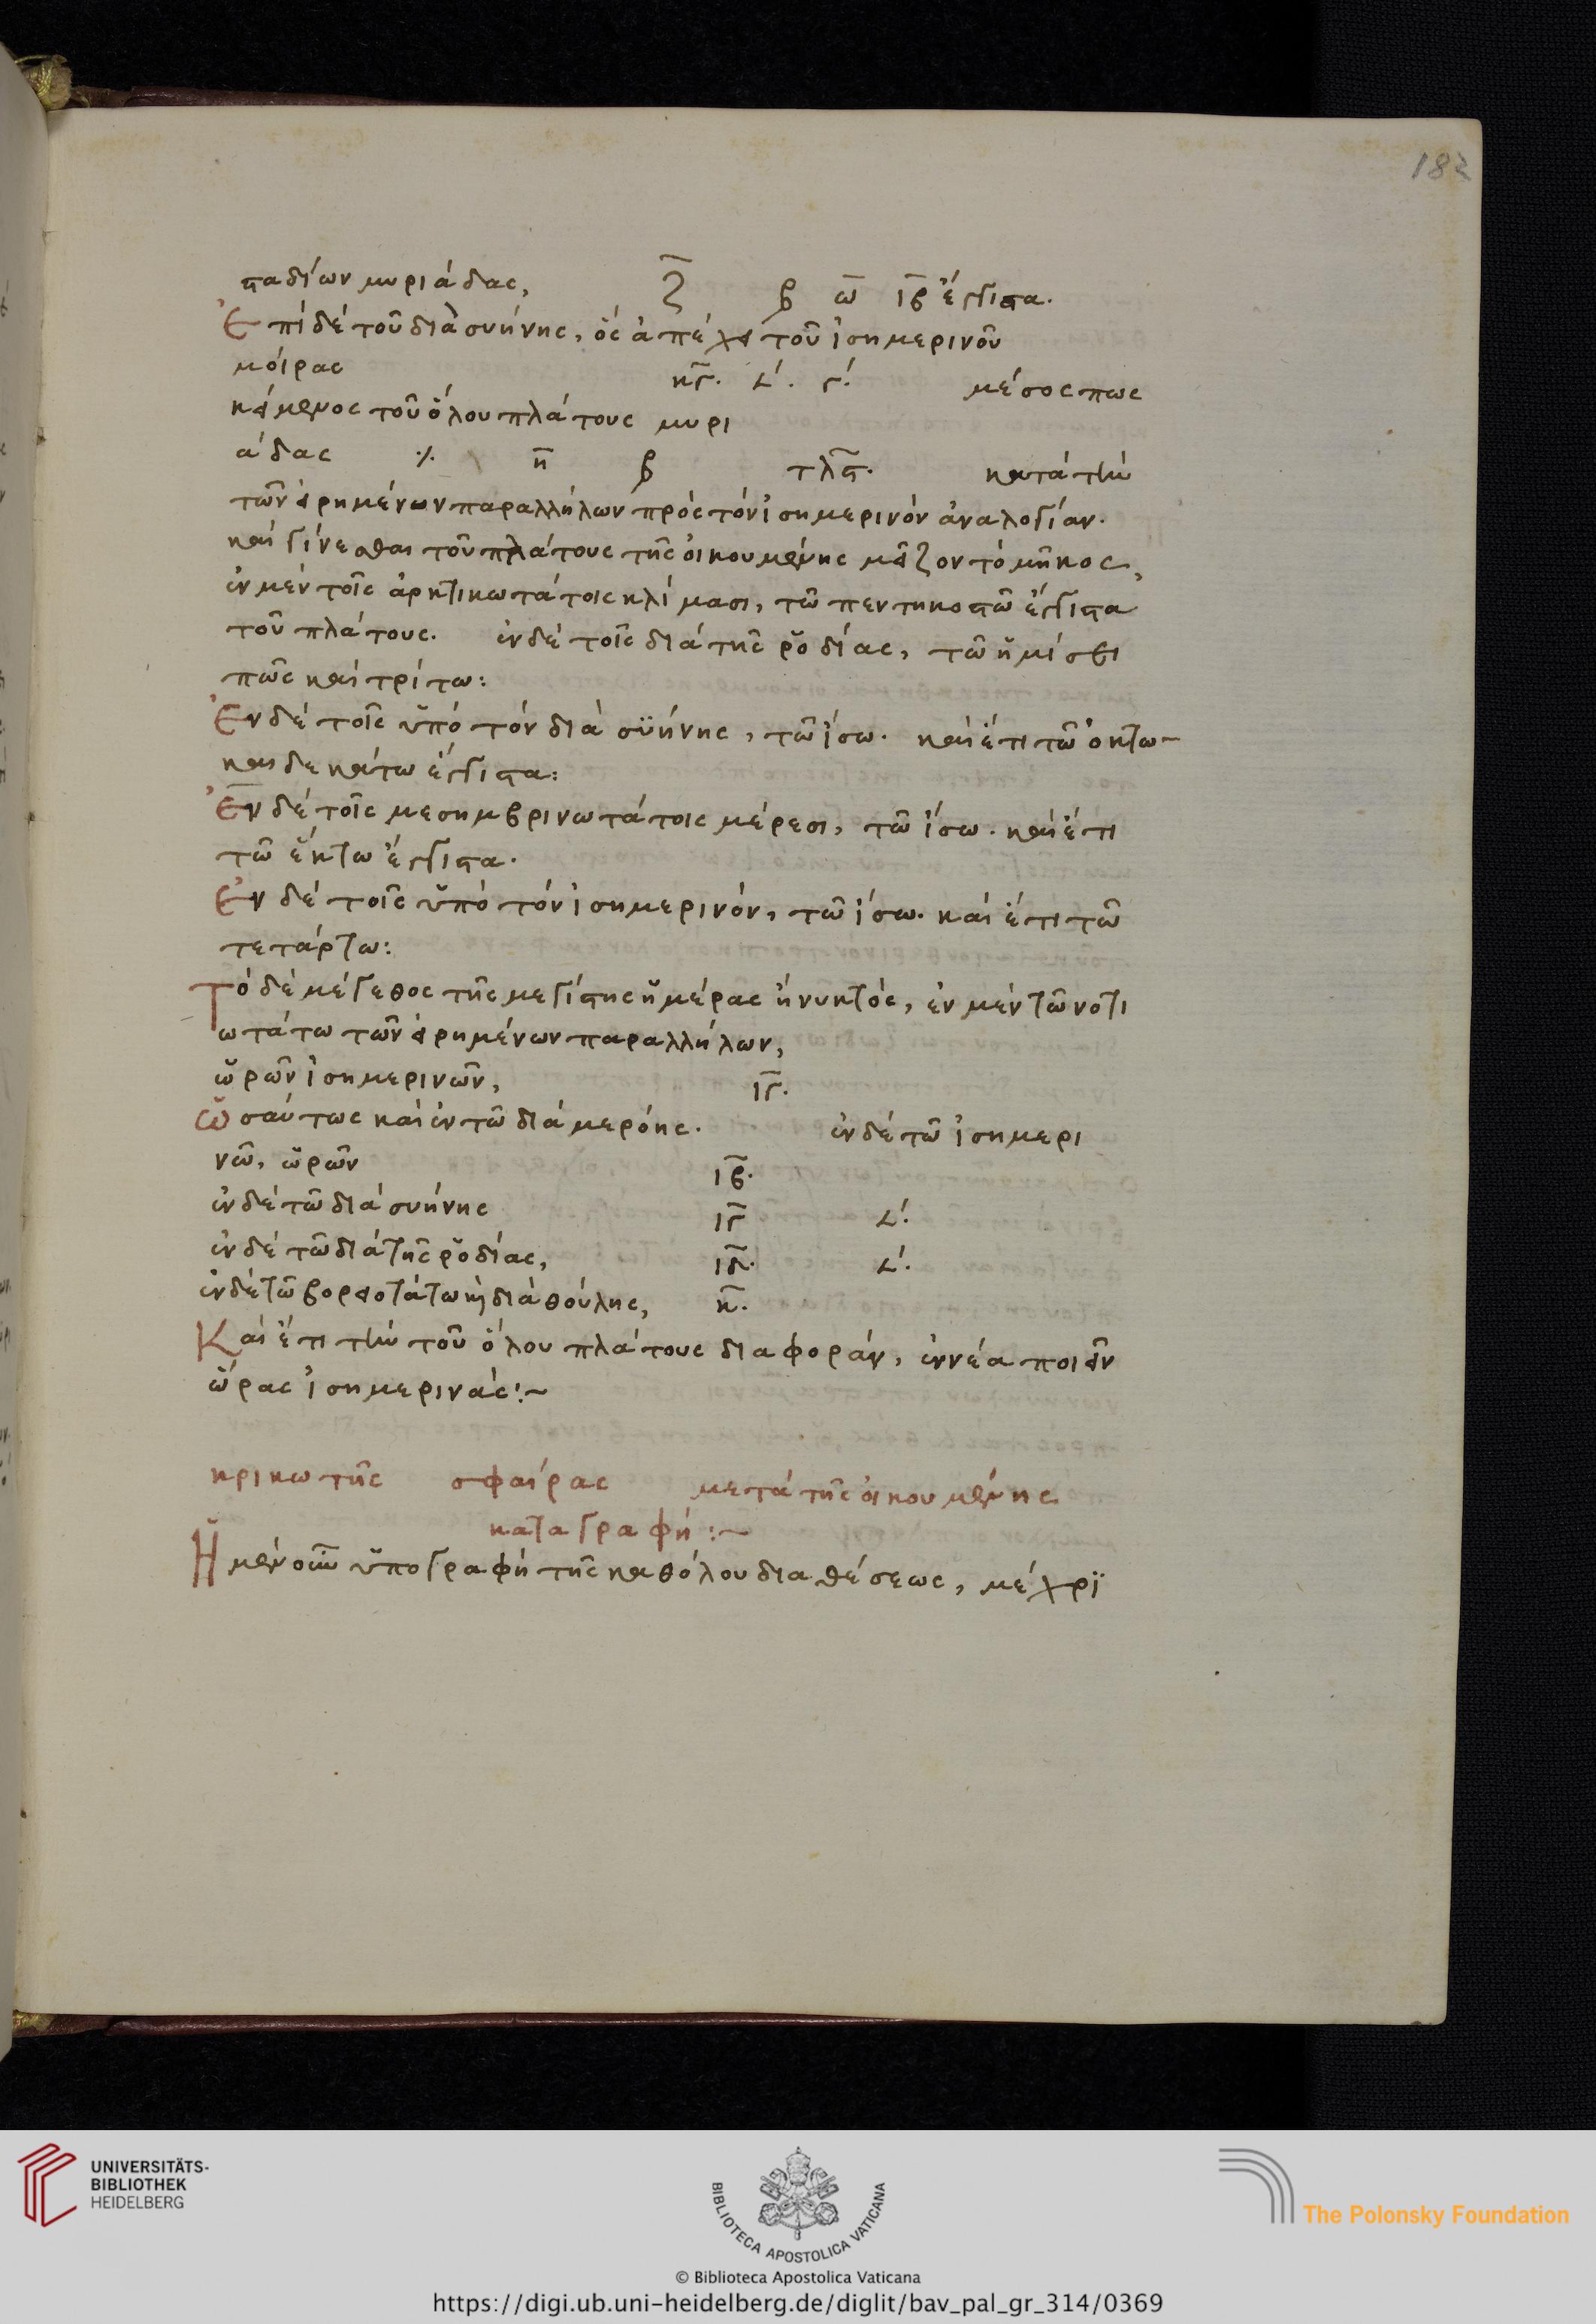 182
σταδίων μυριάδας, ζ̅ β ω̅ ιβ̅ ἔγγιστα.
Ἐπὶ δὲ τοῦ διὰ συήνης, ὃς ἀπέχει τοῦ ἰσημερινοῦ
μοίρας κγ̅. 𐅵΄. γ΄. μέσος πως
κείμενος τοῦ ὅλου πλάτους μυρι
άδας ·/. η̅ β τλϛ̅. κατὰ τὴν
τῶν εἰρημένων παραλλήλων πρὸς τὸν ἰσημερινὸν ἀναλογίαν.
καὶ γίνεσθαι τοῦ πλάτους τῆς οἰκουμένης μεῖζον τὸ μῆκος,
ἐν μὲν τοῖς ἀρκτικωτάτοις κλίμασι, τῶ πεντηκοστῶ ἔγγιστα
τοῦ πλάτους. ἐν δὲ τοῖς διὰ τῆς ῥοδίας, τῶ ἡμίσει
πῶς καὶ τρίτω:
Ἐν δὲ τοῖς ὑπὸ τὸν διὰ συήνης, τῶ ἴσω. καὶ ἔτι τῶ ὀκτω-
καιδεκάτω ἔγγιστα:
Ἐν δὲ τοῖς μεσημβρινωτάτοις μέρεσι, τῶ ἴσω. καὶ ἔτι
τῶ ἕκτω ἔγγιστα.
Ἐν δὲ τοῖς ὑπὸ τὸν ἰσημερινόν, τῶ ἴσω. καὶ ἔτι τῶ
τετάρτω:
Τὸ δὲ μέγεθος τῆς μεγίστης ἡμέρας ἢ νυκτός, ἐν μὲν τῶ νοτι
ωτάτω τῶν εἰρημένων παραλλήλων,
ὡρῶν ἰσημερινῶν, ιγ̅.
Ὡσαύτως καὶ ἐν τῶ διὰ μερόης. ἐν δὲ τῶ ἰσημερι
νῶ, ὡρῶν ιβ̅.
ἐν δὲ τῶ διὰ συήνης ιγ̅ 𐅵΄.
ἐν δὲ τῶ διὰ τῆς ῥοδίας, ιδ̅. 𐅵΄.
ἐν δὲ τῶ βορειοτάτω κὶ διὰ θούλης, κ̅.
Καὶ ἔτι τὴν τοῦ ὅλου πλάτους διαφοράν, ἐννέα ποιεῖν
ὥρας ἰσημερινάς:~
κρικωτῆς σφαίρας μετὰ τῆς οἰκουμένης
καταγραφή:~
Ἡ μὲν οὖν ὑπογραφὴ τῆς καθόλου διαθέσεως, μέχρϊ
UNIVERSITÄTS-
BIBLIOTHEK
HEIDELBERG
BIBLIOTECA APOSTOLICA VATICANA
The Polonsky Foundation
© Biblioteca Apostolica Vaticana
https://digi.ub.uni-heidelberg.de/diglit/bav_pal_gr_314/0369